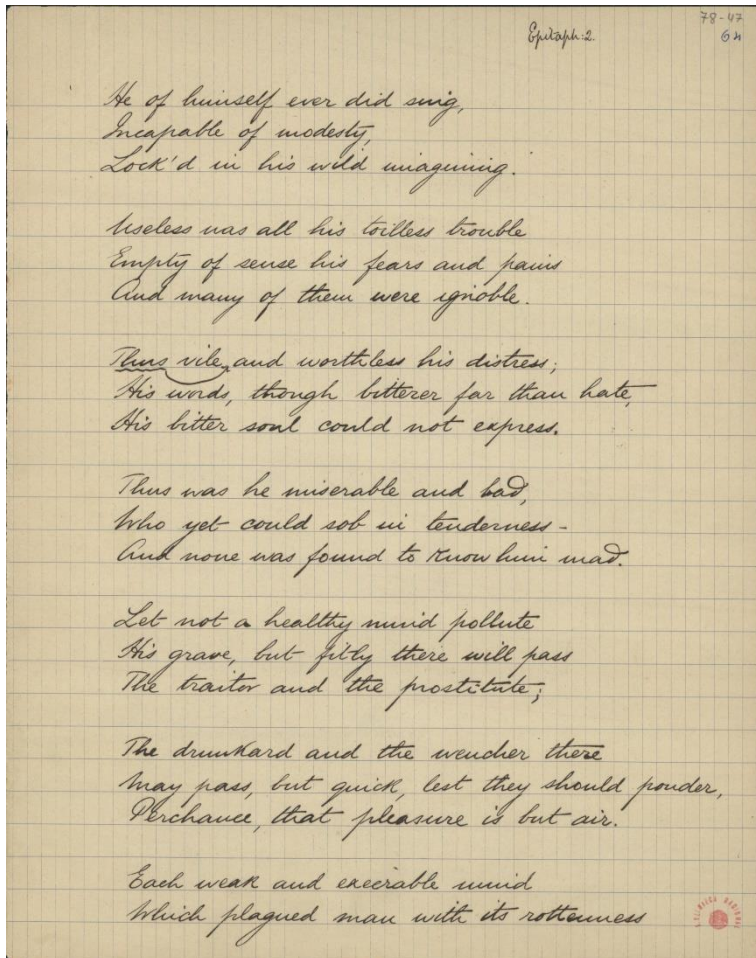 78-47
Epitaph: 2.
64
He of himself ever did sing,
Incapable of modesty,
Lock'd in his wild imagining.
Useless was all his toilless trouble
Empty of sense his fears and pains
And many of them were ignoble.
Thus vile, and worthless his distress;
His words, though bitterer far than hate,
His bitter soul could not express.
Thus was he miserable and bad,
Who yet could sob in tenderness -
And none was found to know him mad.
Let not a healthy mind pollute
His grave, but fitly there will pass
The traitor and the prostitute;
The drunkard and the wencher there
May pass, but quick, lest they should ponder,
Perchance, that pleasure is but air.
Each weak and execrable mind
Which plagued man with its rottenness